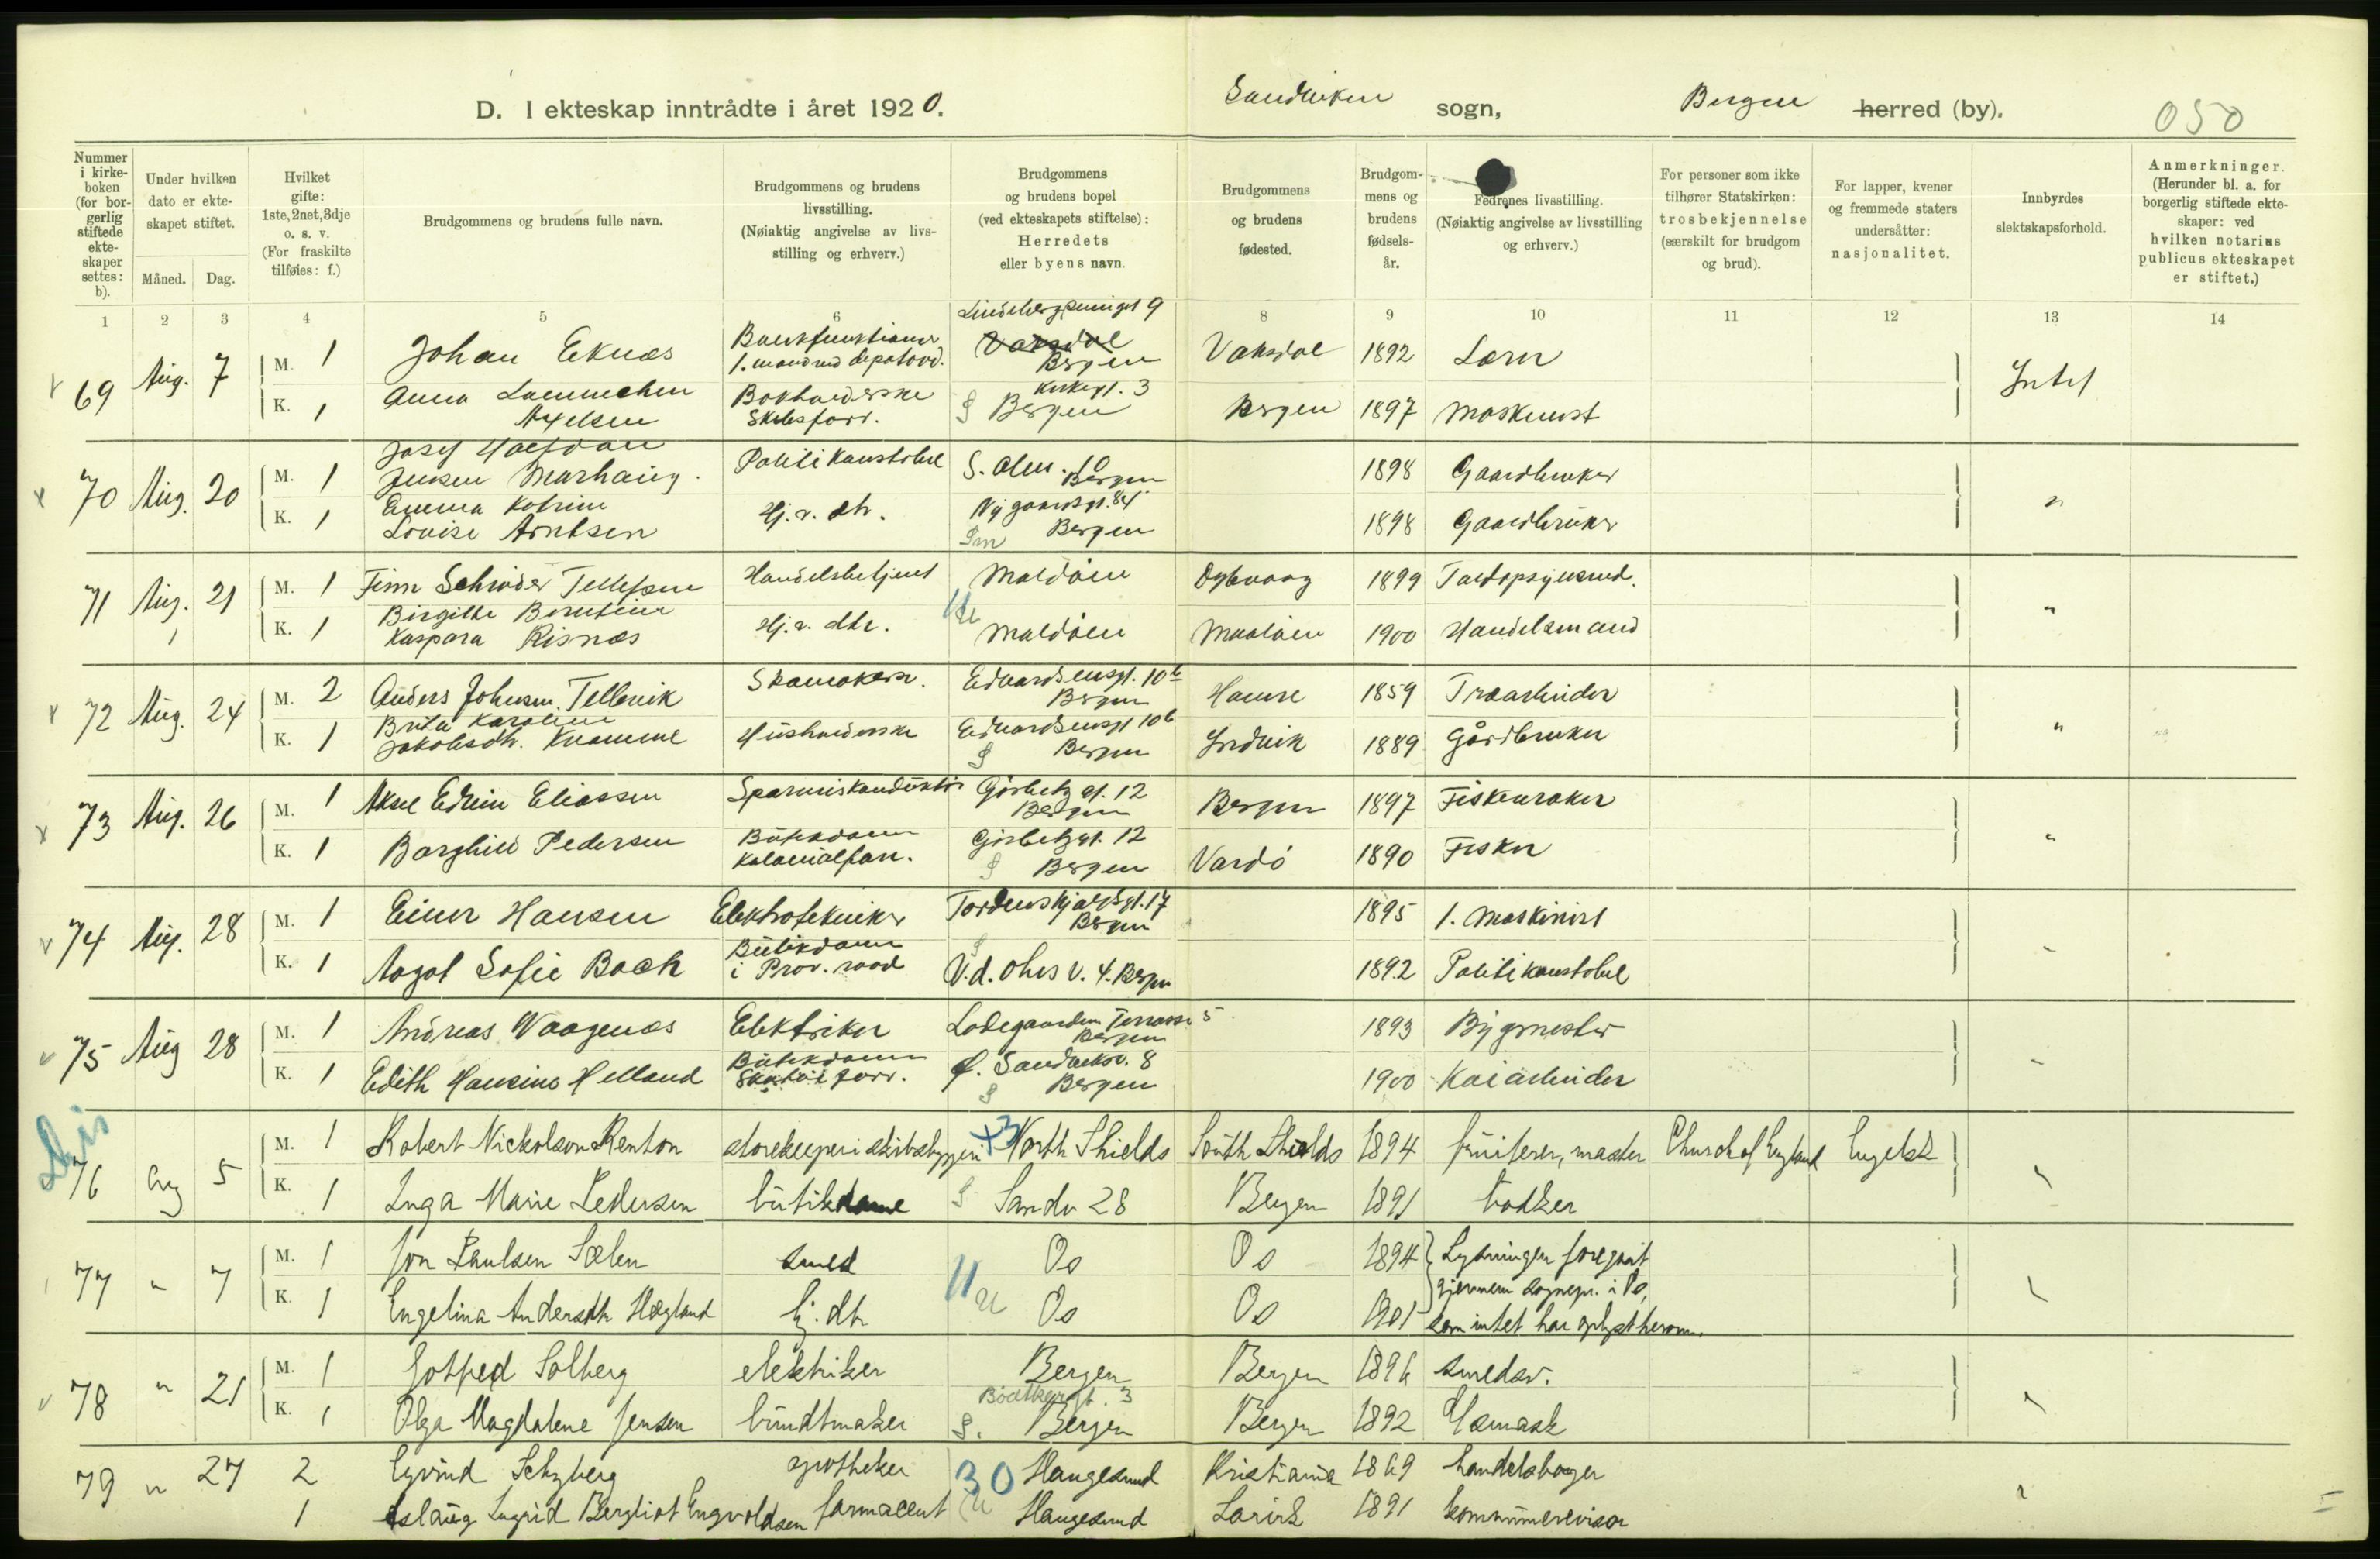 D. I ekteskap inntrådte i året 1920.
Sandviken sogn,
Bergen herred (by).
050
Nummer i kirkeboken (for borgerlig stiftede ekteskaper settes: b).
Under hvilken dato er ekteskapet stiftet.
Måned. Dag.
Hvilket gifte: 1ste, 2net, 3dje o. s. v. (For fraskilte tilføies: f.)
Brudgommens og brudens fulle navn.
Brudgommens og brudens livsstilling. (Nøiaktig angivelse av livsstilling og erhverv.)
Brudgommens og brudens bopel (ved ekteskapets stiftelse): Herredets eller byens navn.
Brudgommens og brudens fødested.
Brudgommens og brudens fødselsår.
Fedrenes livsstilling. (Nøiaktig angivelse av livsstilling og erhverv.)
For personer som ikke tilhører Statskirken: trosbekjennelse (særskilt for brudgom og brud).
For lapper, kvener og fremmede staters undersåtter: nasjonalitet.
Innbyrdes slektskapsforhold.
Anmerkninger. (Herunder bl. a. for borgerlig stiftede ekteskaper: ved hvilken notarius publicus ekteskapet er stiftet.)
1 2 3 4 5 6 8 9 10 11 12 13 14
69 Aug. 7 M. 1 Johan Eknæs Bergen Vaksdal 1892 Lærer Intet
K. 1 Anna Axelsen Kirkegt. 3 Bergen Bergen 1897 Maskinist
70 Aug. 20 M. 1 Josef Halfdan Jensen Marhaug. Politikonstabel Bergen 1898 Gaardbruker "
K. 1 Emma Katrine Louise Arntsen Hj. v. dtr. Nygaardsgt. 84 Bergen 1898 Gaardbruker
71 Aug. 21 M. 1 Finn Schrøder Tellefsen Handelsbetjent Maldöen 1899 "
K. 1 Birgitte Berntine Kaspara Risnæs Hj. v. dtr. Maldöen Maaløen 1900 Handelsmand
72 Aug. 24 M. 2 Anders Johnsen Tellevik Skomaker. Edvardsensgt. 10b Bergen Hamre 1859 Træarbeider "
K. 1 Brita Karoline Jakobsdtr. Kvamme Husholderske Edvardsensgt 10b Bergen Indvik 1889 Gårdbruker
73 Aug. 26 M. 1 Aksel Edvin Eliassen Görbitz gt. 12 Bergen Bergen 1897 Fiskevraker "
K. 1 Borghild Pedersen Butikdame Kolonialforr. Görbitz gt. 12 Bergen Vardö 1890 Fisker
74 Aug. 28 M. 1 Einar Hansen Elektrotekniker Tordenskjoldsgt. 17 Bergen 1895 1. Maskinist "
K. 1 Aagot Sofie Bach Butikdame i Prov. Bergen 1892 Politikonstabel
75 Aug 28 M. 1 Andreas Vaagenes Elektriker Ladegaarden Terrasse 5 Bergen 1893 Bygmester "
K. 1 Edith Hansine Helland Butikdame Skotöi forr. Ø. Sandviksv. 8 Bergen 1900 Kaiarbeider
76 Aug 5 M. 1 Robert Nickolson Renton storekeeper i skibsbyggeri North Shields South Shields 1894 fruiterer, master Church of England Engelsk "
K. 1 Inga Marie Pedersen butikdame Sandv 28 Bergen 1891 bødker
77 " 7 M. 1 Jon Paulsen Sælen smed Os Os 1894 Lysningen foregaat "
K. 1 Engelina Andersdtr Hægland hj. dtr Os Os 1901 gjennem sognepr. i Os,
som intet har oplyst herom.
78 " 21 M. 1 Gotfred Solberg elektriker Bergen Bergen 1896 smedsv. "
K. 1 Olga Magdalene Jensen bundtmaker Bødtkergt. 3 Bergen Bergen 1892
79 " 27 2 Eyvind apotheker 30 Haugesund Kristiania 1869 handelsborger "
1 Aslaug Ingrid Bergliot Engvoldsen farmaceut Haugesund Larvik 1891 kommunerevisor